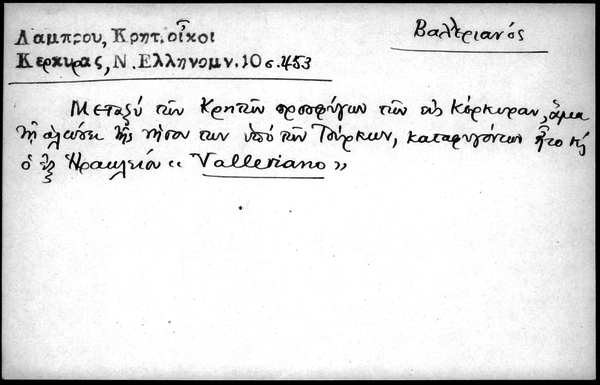 Λαμπρου, Κρητ. οἶκοι
Κερκυρας, Ν. Ελληνομν. 10 σ. 453
Βαλεριανός
Μεταξύ τῶν Κρητῶν προσφύγων τῶν εἰς Κέρκυραν, ἅμα
τῇ ἁλώσει τῆς νήσου των ὑπό τῶν Τούρκων, καταφυγόντων ἦτο κ
ὁ ἐξ Ἡρακλείου « Valleriano »